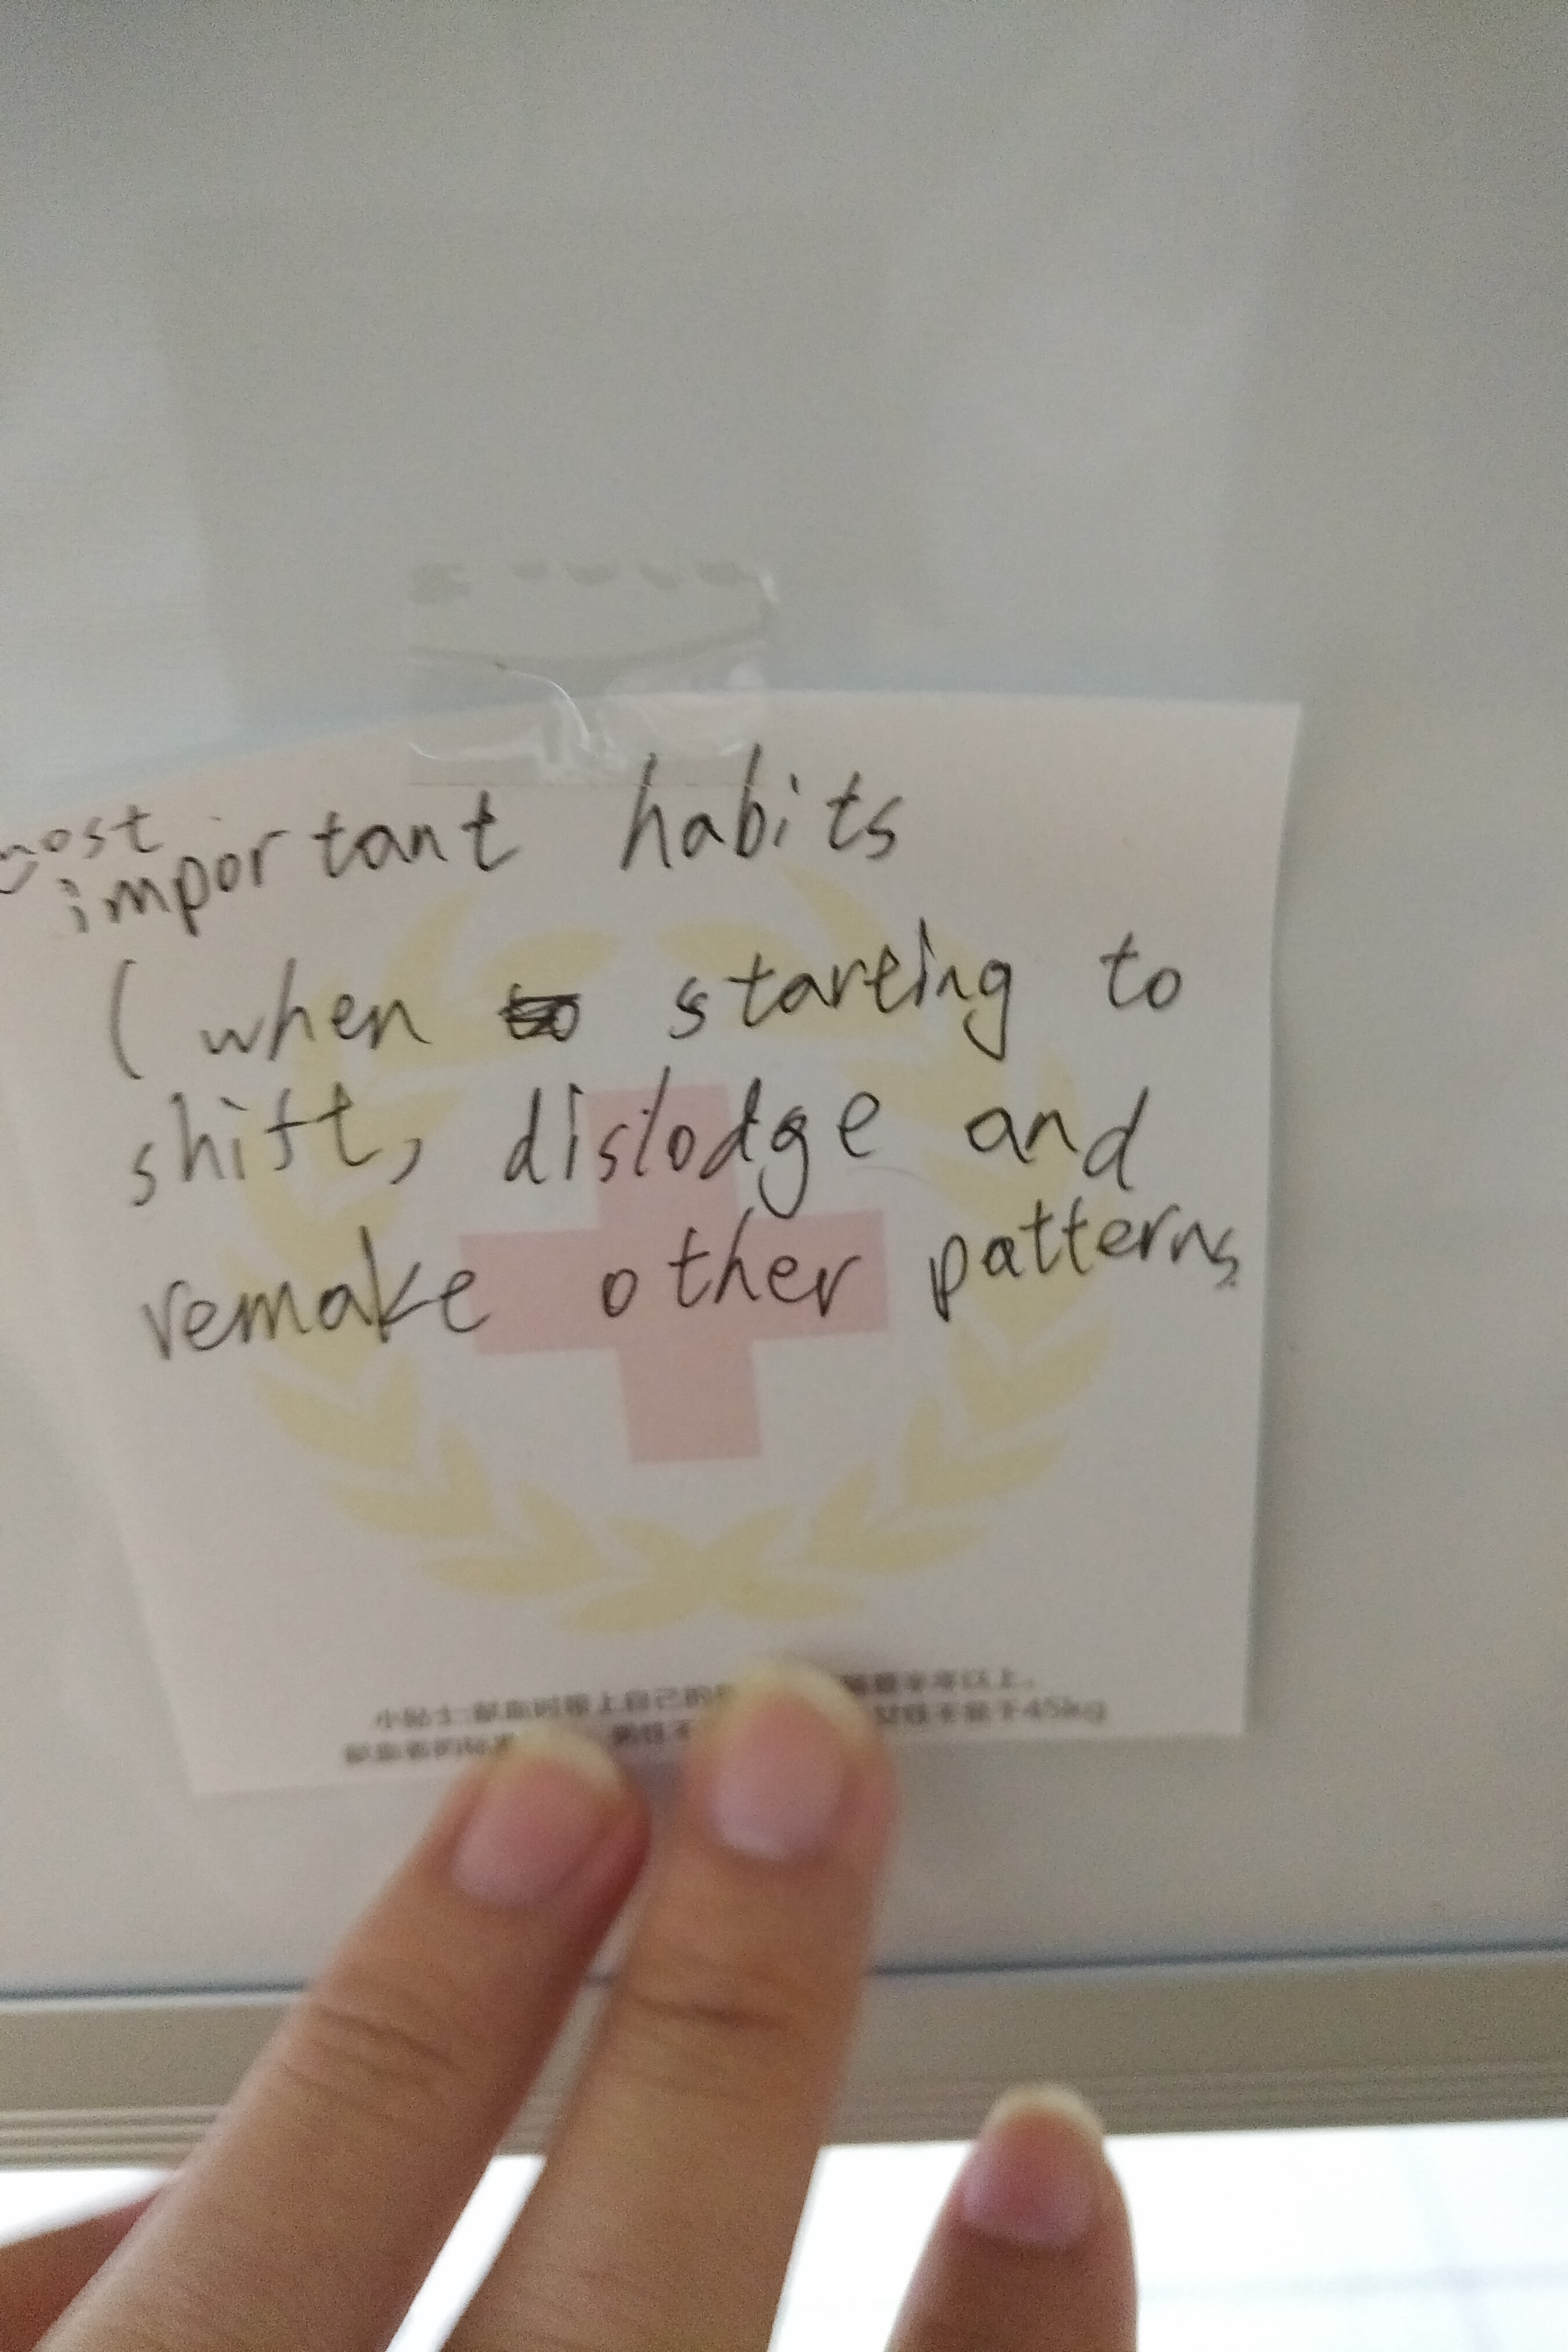 most
important habits
(when starting to
shift, dislodge and
remake other patterns
小贴士:献血时带上自己的 半年以上。
献血者的标准 男性不 女性不低于45kg